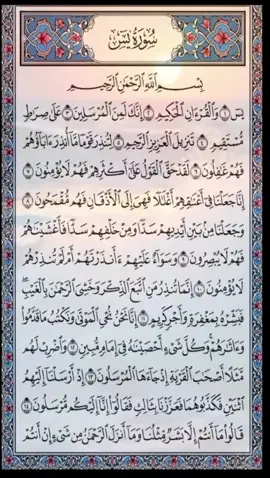 سُورَةُ يسٓ
بِسْمِ ٱللَّهِ ٱلرَّحْمَٰنِ ٱلرَّحِيمِ
يسٓ ١ وَٱلْقُرْءَانِ ٱلْحَكِيمِ ٢ إِنَّكَ لَمِنَ ٱلْمُرْسَلِينَ ٣ عَلَىٰ صِرَٰطٍ
مُّسْتَقِيمٍ ٤ تَنزِيلَ ٱلْعَزِيزِ ٱلرَّحِيمِ ٥ لِتُنذِرَ قَوْمًا مَّآ أُنذِرَ ءَابَآؤُهُمْ
فَهُمْ غَٰفِلُونَ ٦ لَقَدْ حَقَّ ٱلْقَوْلُ عَلَىٰٓ أَكْثَرِهِمْ فَهُمْ لَا يُؤْمِنُونَ ٧
إِنَّا جَعَلْنَا فِىٓ أَعْنَٰقِهِمْ أَغْلَٰلًا فَهِىَ إِلَى ٱلْأَذْقَانِ فَهُم مُّقْمَحُونَ ٨
وَجَعَلْنَا مِنۢ بَيْنِ أَيْدِيهِمْ سَدًّا وَمِنْ خَلْفِهِمْ سَدًّا فَأَغْشَيْنَٰهُمْ
فَهُمْ لَا يُبْصِرُونَ ٩ وَسَوَآءٌ عَلَيْهِمْ ءَأَنذَرْتَهُمْ أَمْ لَمْ تُنذِرْهُمْ
لَا يُؤْمِنُونَ ١٠ إِنَّمَا تُنذِرُ مَنِ ٱتَّبَعَ ٱلذِّكْرَ وَخَشِىَ ٱلرَّحْمَٰنَ بِٱلْغَيْبِ ۖ
فَبَشِّرْهُ بِمَغْفِرَةٍ وَأَجْرٍ كَرِيمٍ ١١ إِنَّا نَحْنُ نُحْىِ ٱلْمَوْتَىٰ وَنَكْتُبُ مَا قَدَّمُوا۟
وَءَاثَٰرَهُمْ ۚ وَكُلَّ شَىْءٍ أَحْصَيْنَٰهُ فِىٓ إِمَامٍ مُّبِينٍ ١٢ وَٱضْرِبْ لَهُم
مَّثَلًا أَصْحَٰبَ ٱلْقَرْيَةِ إِذْ جَآءَهَا ٱلْمُرْسَلُونَ ١٣ إِذْ أَرْسَلْنَآ إِلَيْهِمُ
ٱثْنَيْنِ فَكَذَّبُوهُمَا فَعَزَّزْنَا بِثَالِثٍ فَقَالُوٓا۟ إِنَّآ إِلَيْكُم مُّرْسَلُونَ ١٤
قَالُوا۟ مَآ أَنتُمْ إِلَّا بَشَرٌ مِّثْلُنَا وَمَآ أَنزَلَ ٱلرَّحْمَٰنُ مِن شَىْءٍ إِنْ أَنتُمْ